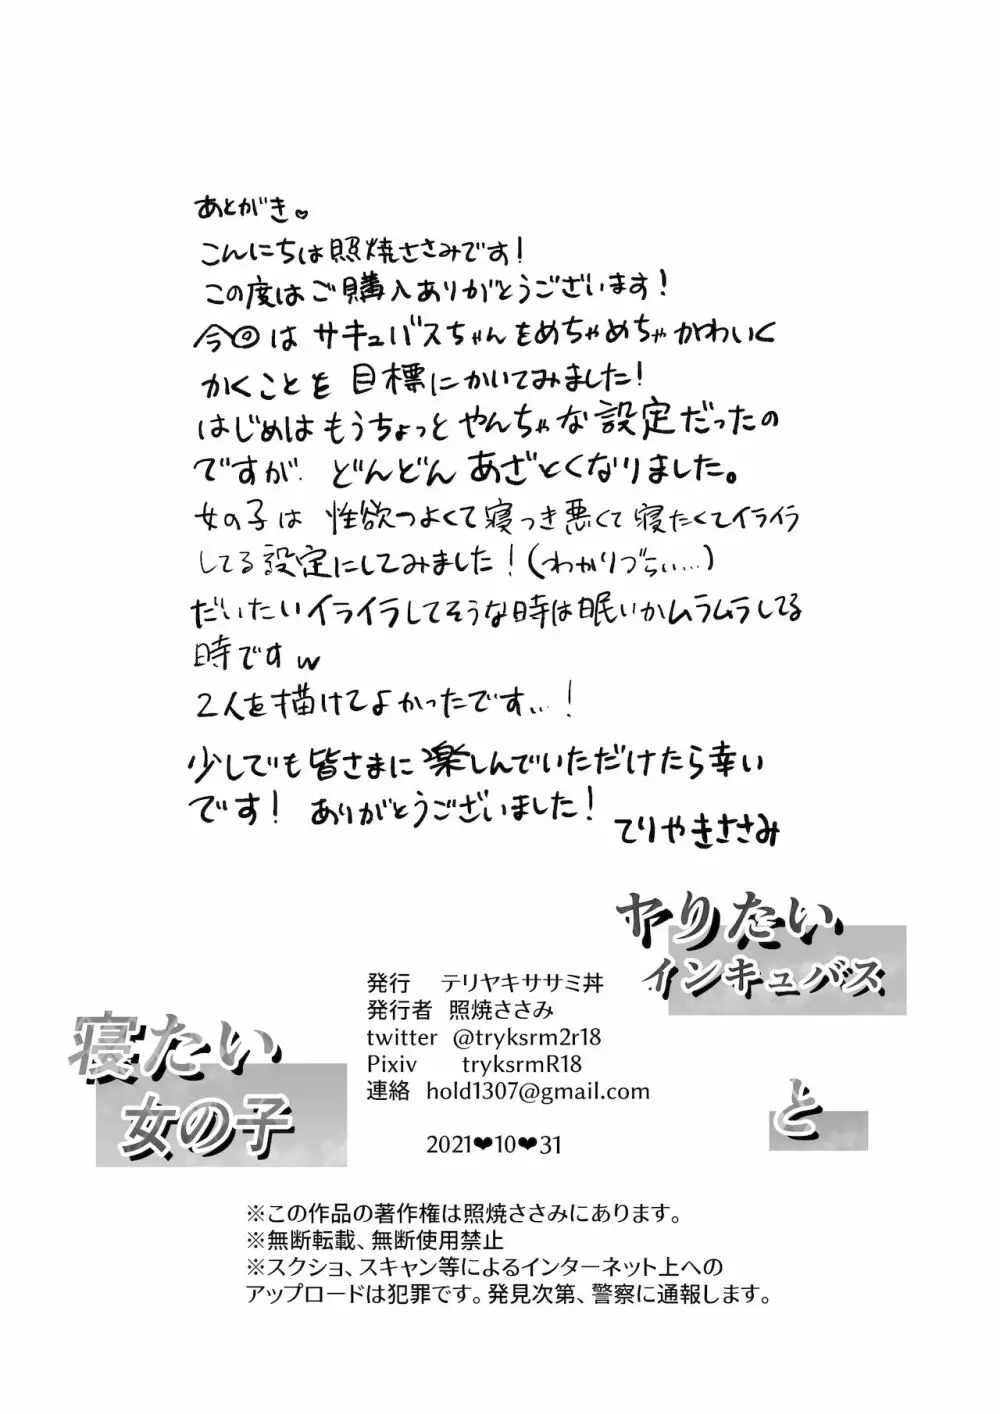 あとがき♥
こんにちは照焼ささみです！
この度はご購入ありがとうございます！
今回はサキュバスちゃんをめちゃめちゃかわいく
かくことを目標にかいてみました！
はじめはもうちょっとやんちゃな設定だったの
ですが、どんどんあざとくなりました。
女の子は性欲つよくて寝つき悪くて寝たくてイライラ
してる設定にしてみました！（わかりづらい…）
だいたいイライラしてそうな時は眠いかムラムラしてる
時ですw
2人を描けてよかったです…！
少しでも皆さまに楽しんでいただけたら幸い
です！ありがとうございました！
てりやきささみ
ヤりたい
インキュバス
と
寝たい
女の子
発行 テリヤキササミ丼
発行者 照焼ささみ
twitter @tryksrm2r18
Pixiv tryksrmR18
連絡 hold1307@gmail.com
2021❤10❤31
※この作品の著作権は照焼ささみにあります。
※無断転載、無断使用禁止
※スクショ、スキャン等によるインターネット上への
アップロードは犯罪です。発見次第、警察に通報します。